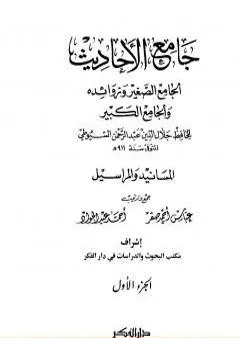 جامع الأحاديث
الجامع الصغير وزوائده
والجامع الكبير
للحافظ جلال الدين عبد الرحمن السيوطي
المتوفى سنة ٩١١ھ
المسانيد والمراسيل
جمع وترتيب
عباس أحمد صقر أحمد عبد الجواد
إشراف
مكتب البحوث والدراسات في دار الفكر
الجزء الأول
دار الفكر